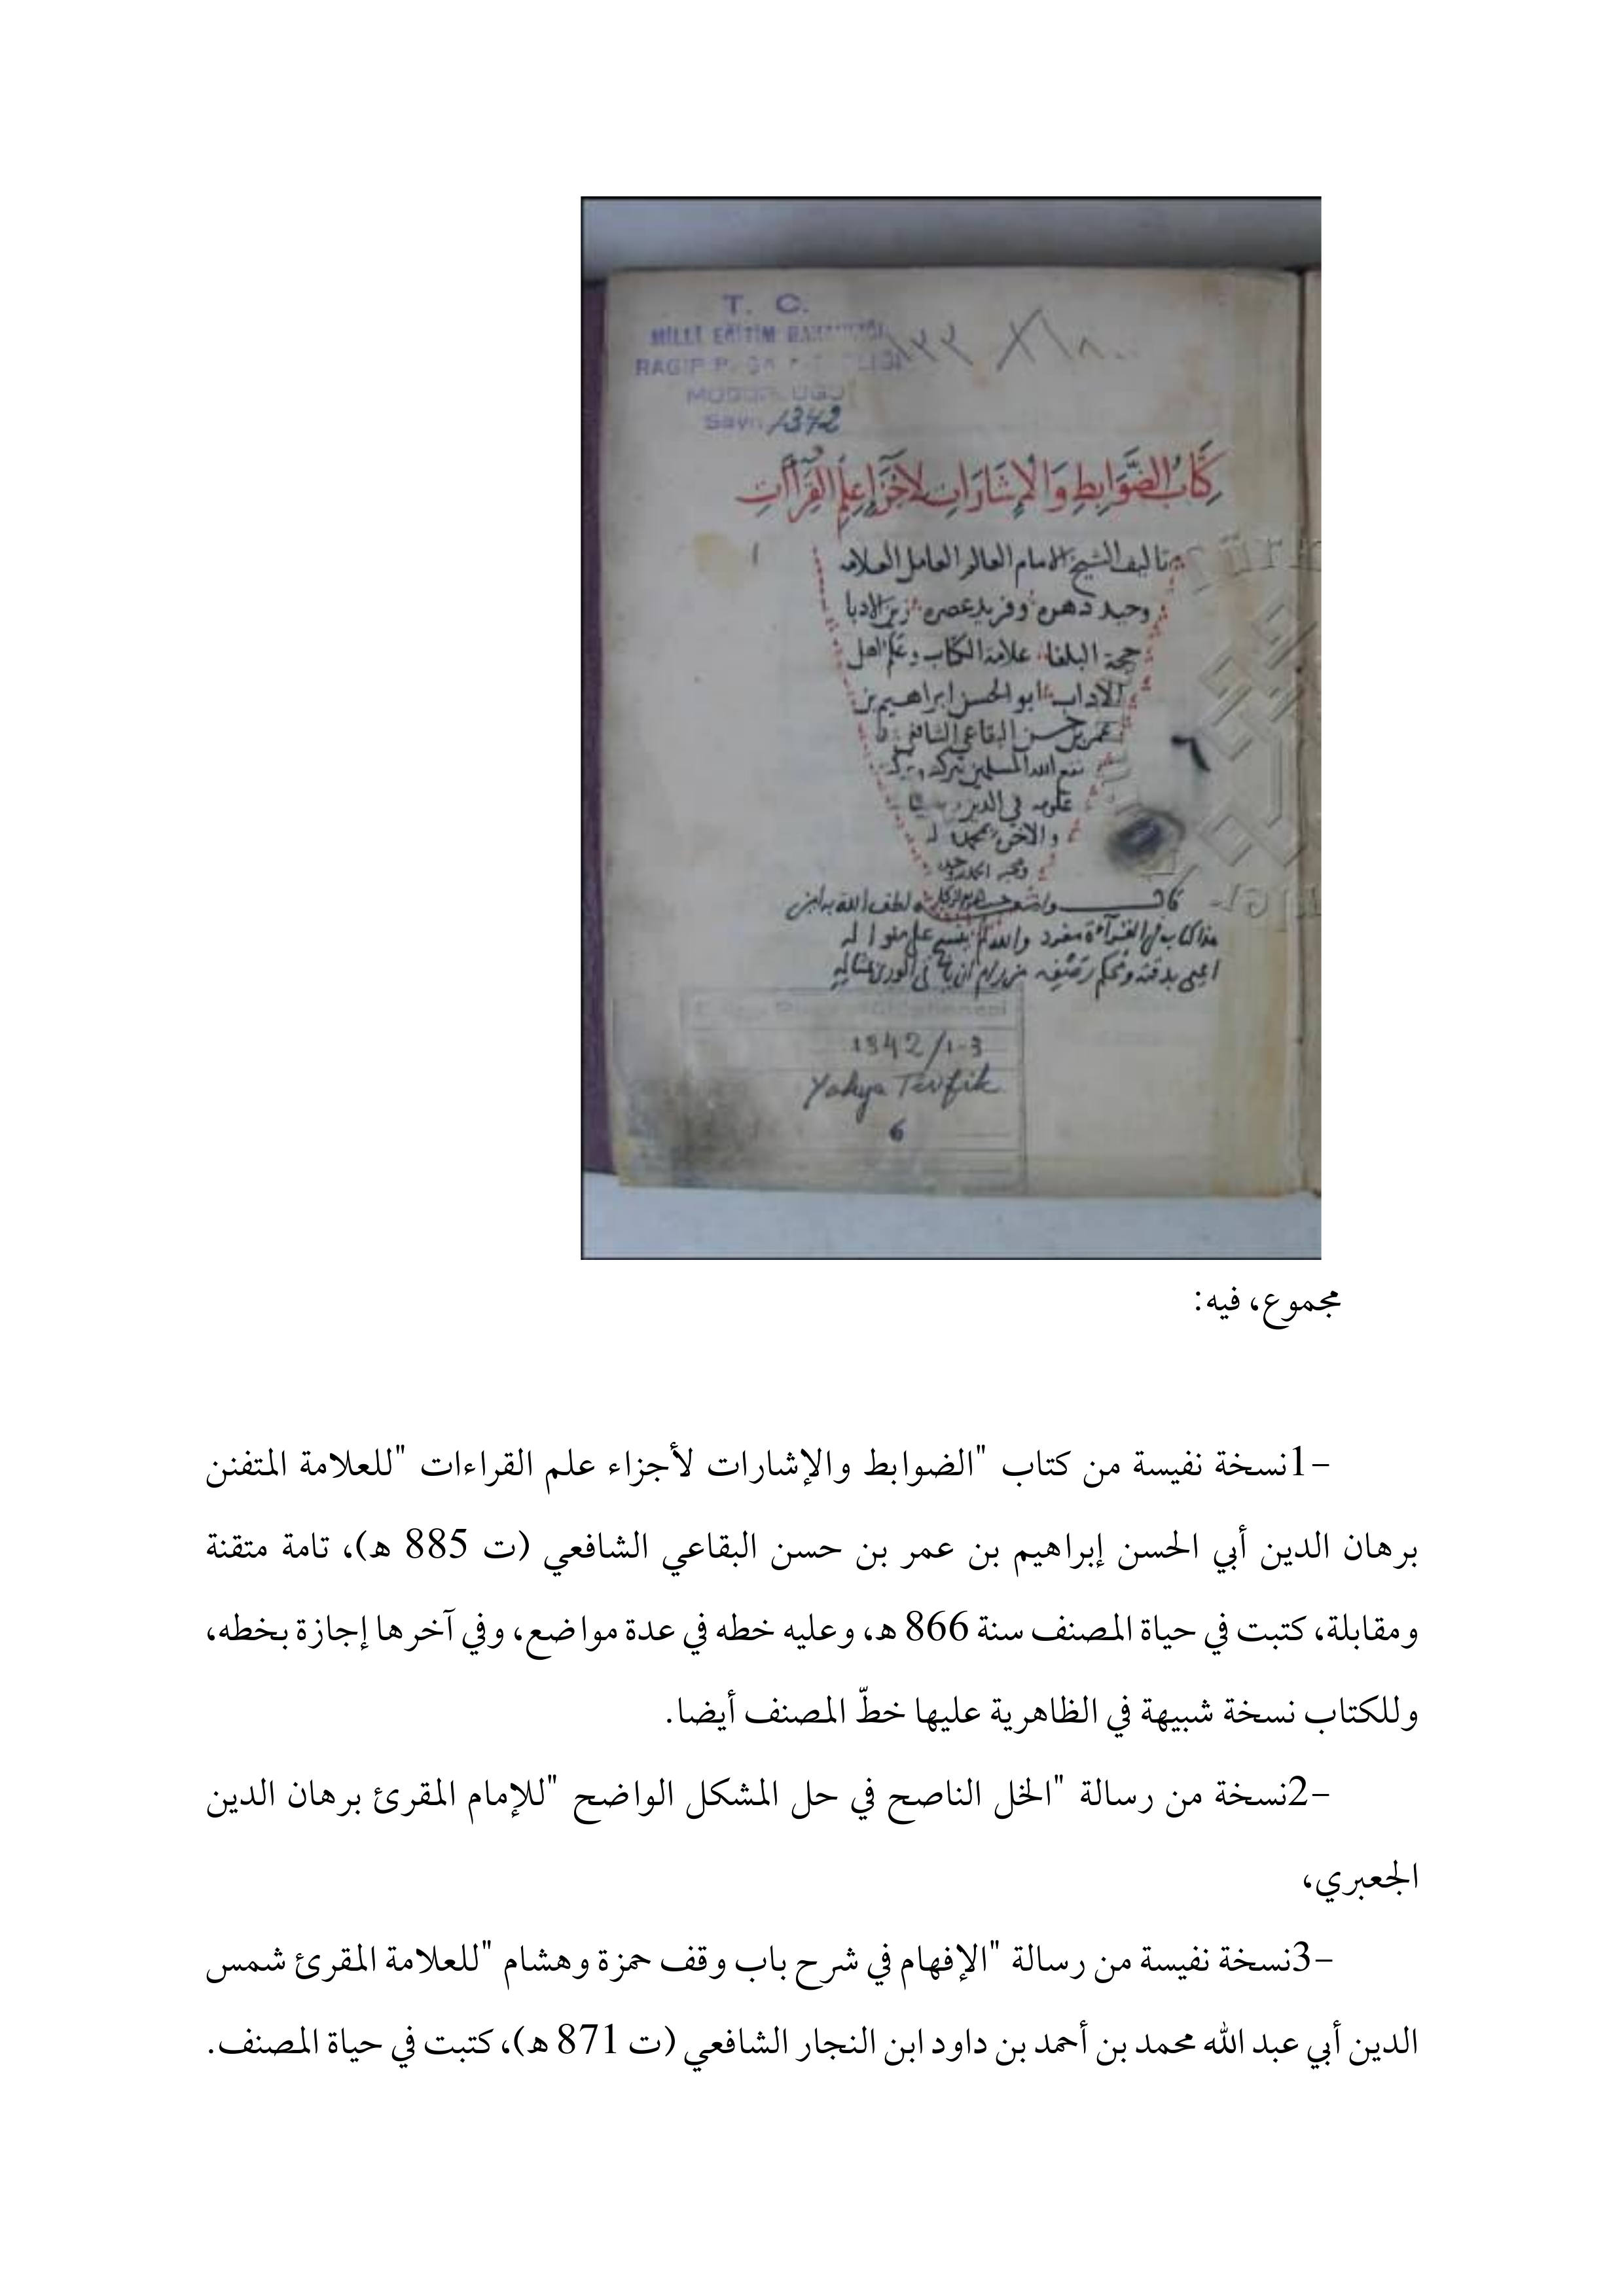 T. C.
MİLLİ EĞİTİM
RAGIP
Sayı: 1342
كِتَابُ الضَّوَابِطِ وَالْإِشَارَاتِ لِأَجْزَاءِ عِلْمِ القِرَاآتِ
تاليف الشيخ الامام العالم العامل العلامه
وحيد دهره وفريد عصره زين الادبا
حجة البلغا علامة الكتاب وعلم اهل
الاداب ابو الحسن ابراهيم بن
عمر بن حسن البقاعي الشافعي
نفع الله المسلمين ببركته
علومه في الدين
والاخرة بمحمد
لطف الله به امين
هذا كتاب في القرآءة مفرد والله لم ينسج على منواله
1342/1-3
Yahya Tevfik
6
مجموع، فيه:
-1نسخة نفيسة من كتاب "الضوابط والإشارات لأجزاء علم القراءات "للعلامة المتفنن
برهان الدين أبي الحسن إبراهيم بن عمر بن حسن البقاعي الشافعي (ت 885 ه)، تامة متقنة
ومقابلة، كتبت في حياة المصنف سنة 866 ه، وعليه خطه في عدة مواضع، وفي آخرها إجازة بخطه،
وللكتاب نسخة شبيهة في الظاهرية عليها خطّ المصنف أيضا.
-2نسخة من رسالة "الخل الناصح في حل المشكل الواضح "للإمام المقرئ برهان الدين
الجعبري،
-3نسخة نفيسة من رسالة "الإفهام في شرح باب وقف حمزة وهشام "للعلامة المقرئ شمس
الدين أبي عبد الله محمد بن أحمد بن داود ابن النجار الشافعي (ت 871 ه)، كتبت في حياة المصنف.